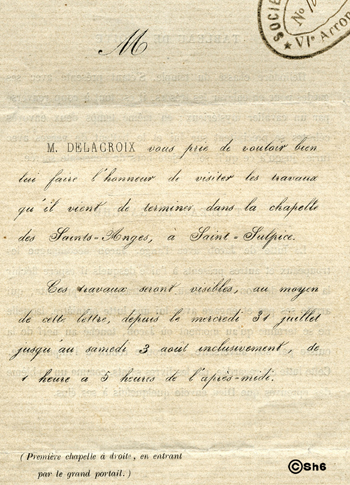 SOCIÉ
No
VIe Arron
M
M. DELACROIX vous prie de vouloir bien
lui faire l'honneur de visiter les travaux
qu'il vient de terminer dans la chapelle
des Saints-Anges, à Saint-Sulpice.
Ces travaux seront visibles, au moyen
de cette lettre, depuis le mercredi 31 juillet
jusqu'au samedi 3 août inclusivement, de
1 heure à 5 heures de l'après-midi.
(Première chapelle à droite, en entrant
par le grand portail.)
©Sh6